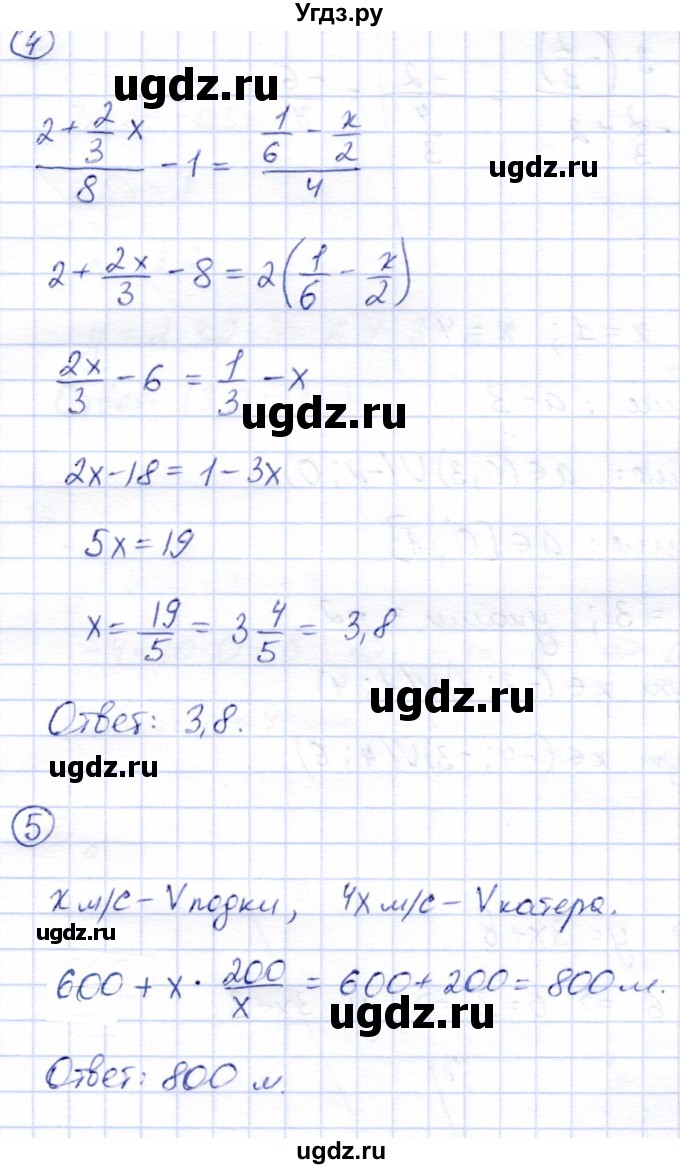 Угдз.ру
4
ugdz.ru
(2 + 2/3 x)/8 - 1 = (1/6 - x/2)/4
ugdz.ru
2 + 2x/3 - 8 = 2(1/6 - x/2)
2x/3 - 6 = 1/3 - x
ugdz.ru
2x - 18 = 1 - 3x
5x = 19
x = 19/5 = 3 4/5 = 3,8
ugdz.ru
Ответ: 3,8.
ugdz.ru
5
x м/с - V лодки, 4x м/с - V катера.
ugdz.ru
600 + x · 200/x = 600 + 200 = 800 м.
ugdz.ru
Ответ: 800 м.
ugdz.ru